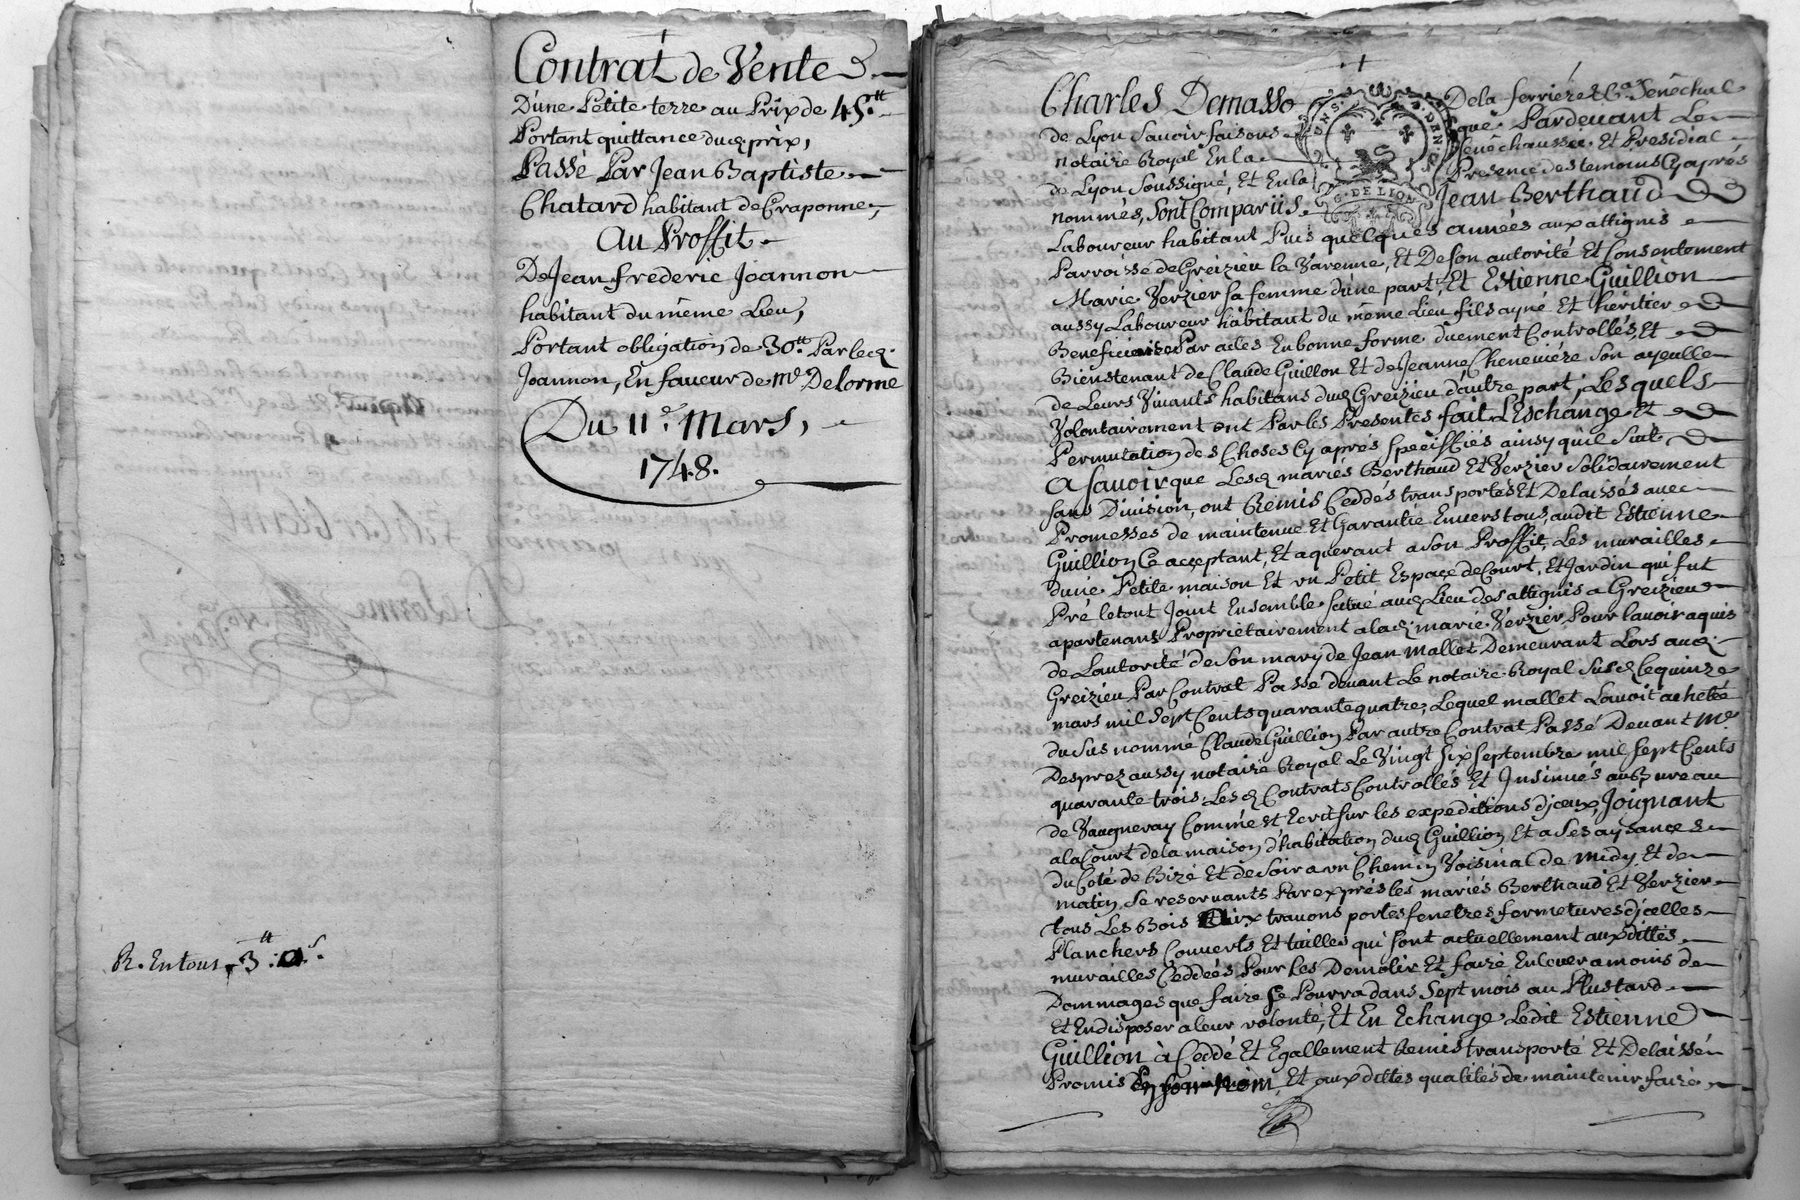 Contrat de Vente
D'une Petite terre au Prix de 45.tt
Portant quittance dud. prix,
Passé Par Jean Baptiste
Chatard habitant de Craponne,
Au Proffit
De Jean frederic Joannon
habitant du même Lieu,
Portant obligation de 30.tt Par led.
Joannon, En faveur de Me Delorme
Du 11.e Mars,
1748.
R. En tout 3.tt
Charles Demasso De la ferriere &Ca. Sénéchal
de Lyon Savoir faisons que Pardevant Le
notaire Royal En la Sénéchaussée Et Presidial
de Lyon Soussigné, Et En la Presence des temoins Cy aprés
nommés, Sont Comparüs Jean Berthaud
Laboureur habitant Puis quelques années aux attignis
Parroisse de Greizieu la Varenne, Et De son autorité Et Consentement
Marie Verzier sa femme d'une part, Et Estienne Guillion
aussy Laboureur habitant du même Lieu fils ayné Et héritier
Beneficiaire Par actes En bonne forme düement Controllés, Et
Bienstenant de Claude Guillon Et de Jeanne Cheneviére Son ayeulle
de Leurs Vivants habitans dud. Greizieu d'autre part; Lesquels
Volontairement ont Par les Presentes fait L'Eschange Et
Permutation des Choses Cy aprés Speciffiés ainsy qu'il Suit
A Savoir que Lesd. mariés Berthaud Et Verzier Solidairement
Sans Division, ont Remis Ceddés transportés Et Delaissés avec
Promesses de maintenue Et Garantie Envers tous, audit Estienne
Guillion Ce acceptant, Et aquerant a Son Proffit, Les murailles
d'une Petite maison Et un Petit Espace de Court, Et Jardin qui fut
Pré le tout Joint Ensemble Situé aud. Lieu des attignis a Greizieu
apartenant Propriétairement a lad. marie Verzier, Pour l'avoir aquis
de L'autorité de Son mary de Jean mallet Demeurant Lors aud.
Greizieu Par Contrat Passé devant Le notaire Royal Susd. Le quinze
mars mil Sept Cents quarante quatre, Lequel mallet L'avoit acheté
du Sus nommé Claude Guillion Par autre Contrat Passé Devant Me
Desprez aussy notaire Royal Le Vingt Six Septembre mil Sept Cents
quarante trois, Lesd. Contrats Controllés Et Insinués au Bureau
de Vaugneray Comme Et Ecrit Sur les expéditions d'iceux, Joignant
a la Court de la maison d'habitation dud. Guillion Et a Ses aysances
du Coté de Bize Et de Soir a un Chemin Voisinal de midy Et de
matin, Se reservants Par exprés les mariés Berthaud Et Verzier
tous Les Bois travons portes fenetres formetures d'icelles
Planchers Couverts Et tuilles qui sont actuellement aux dittes
murailles Ceddées Pour les Demolir Et faire Enlever a moins de
Dommages que faire Se Pourra dans Sept mois au Plustard
Et En disposer a leur volonté, Et En Echange Ledit Estienne
Guillion à Ceddé Et Egallement Remis transporté Et Delaissé
Promis Et aux dittes qualités de maintenir faire